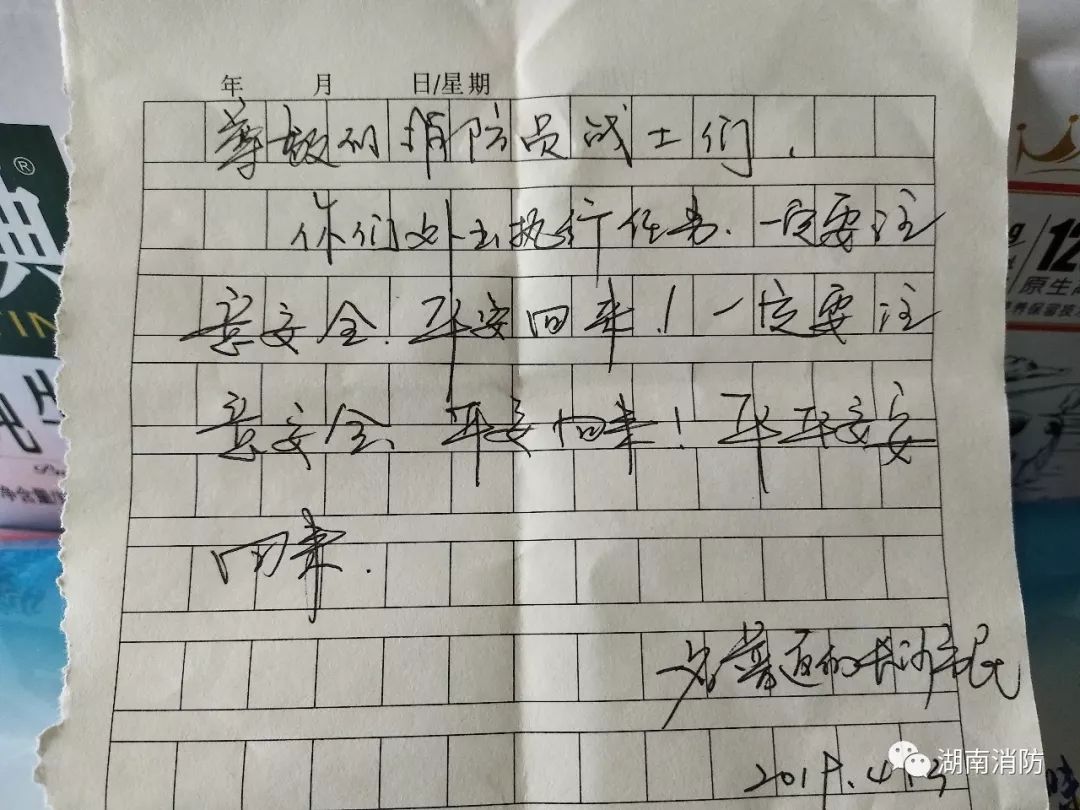 年 月 日/星期
尊敬的消防员战士们,
你们外出执行任务、一定要注
意安全、平安回来!一定要注
意安全、平安回来!平平安安
回来.
一名普通的长沙市民
2019.4.3
湖南消防
®
典
12
原生高
净含量